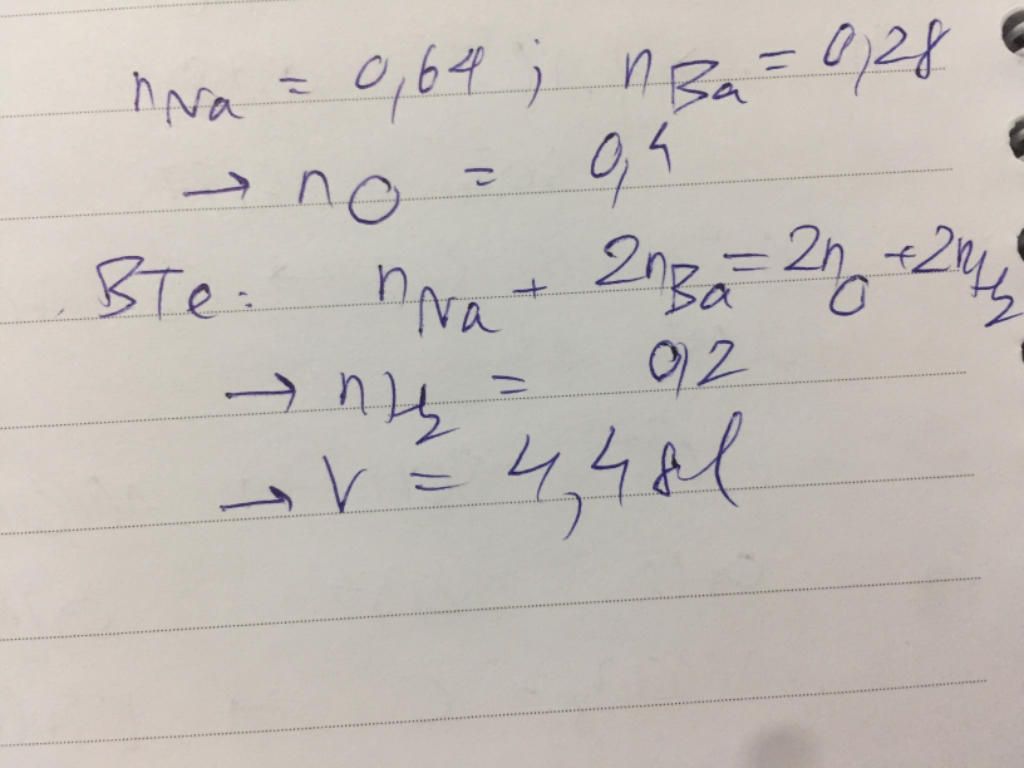 nNa = 0,64 ; nBa = 0,28
→ nO = 0,4
BTe: nNa + 2nBa = 2nO + 2nH2
→ nH2 = 0,2
→ V = 4,48l